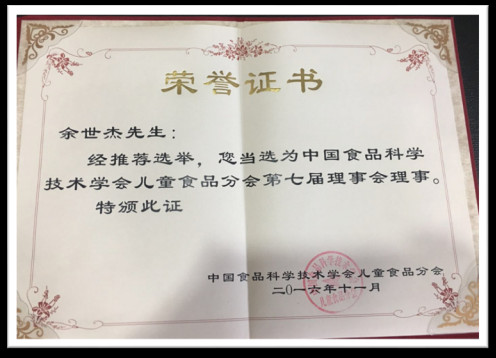 荣誉证书
余世杰先生：
经推荐选举，您当选为中国食品科学
技术学会儿童食品分会第七届理事会理事。
特颁此证
中国食品科学技术学会儿童食品分会
二〇一六年十一月